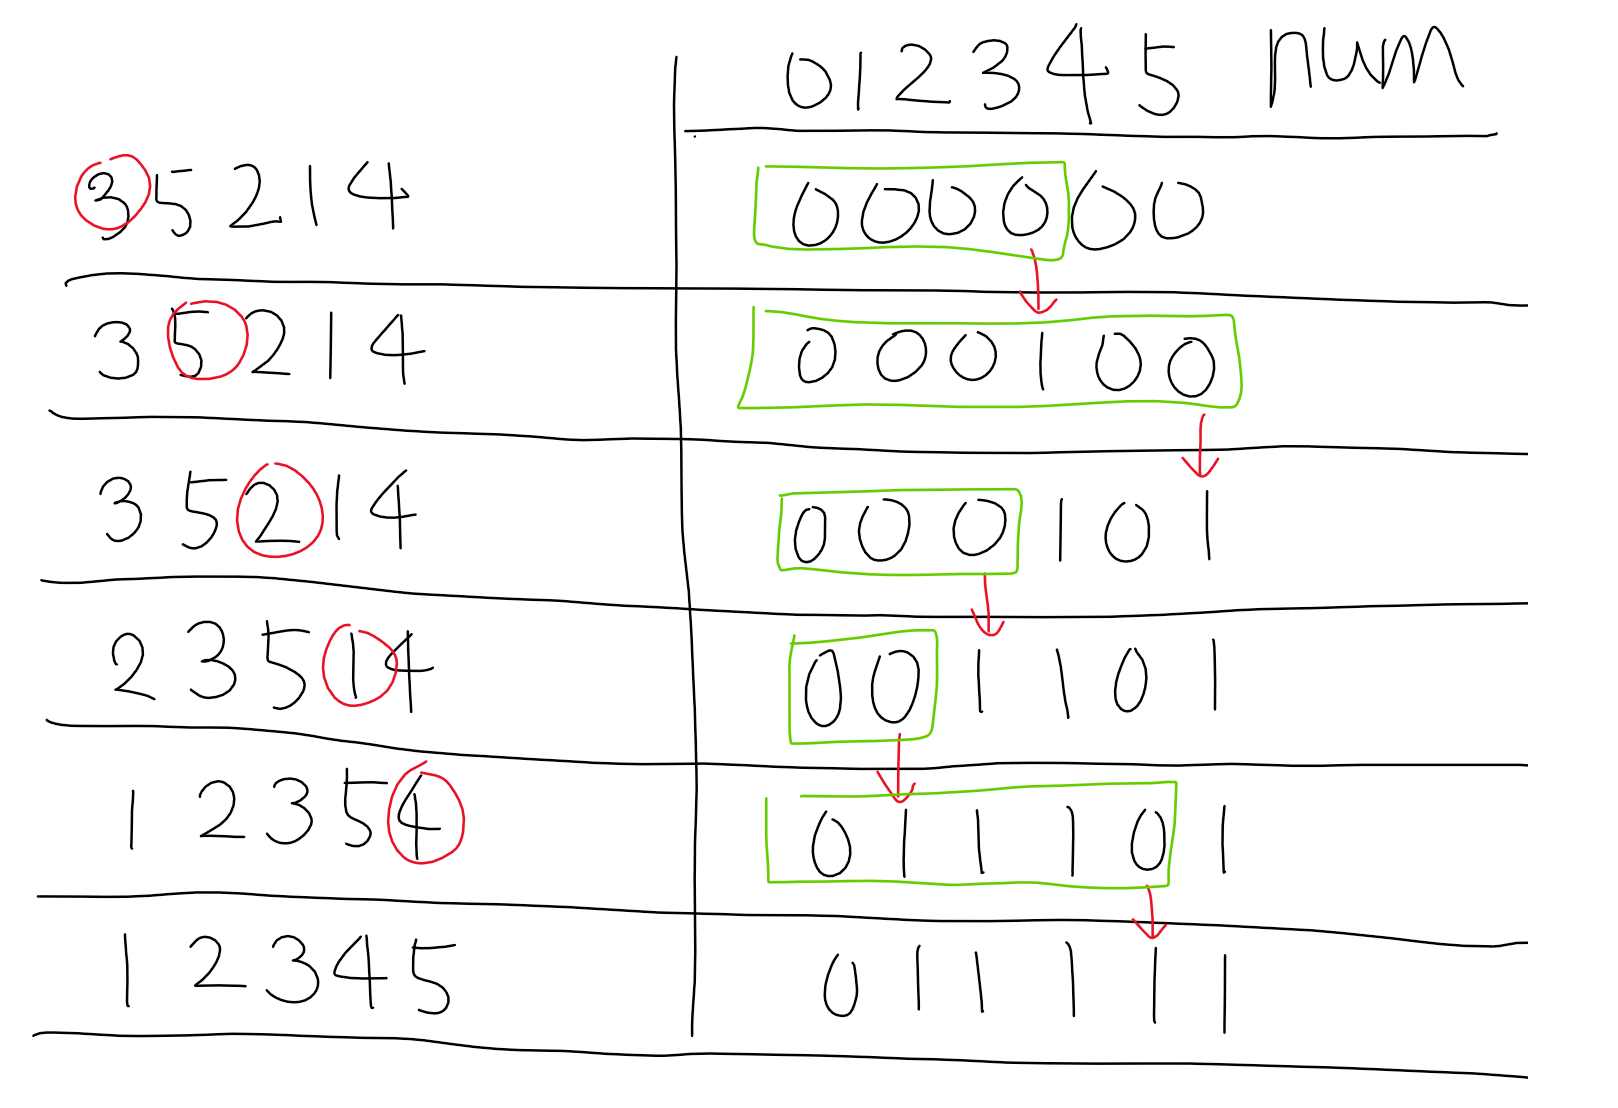 0 1 2 3 4 5 num
3 5 2 1 4 0 0 0 0 0 0
3 5 2 1 4 0 0 0 1 0 0
3 5 2 1 4 0 0 0 1 0 1
2 3 5 1 4 0 0 1 1 0 1
1 2 3 5 4 0 1 1 1 0 1
1 2 3 4 5 0 1 1 1 1 1